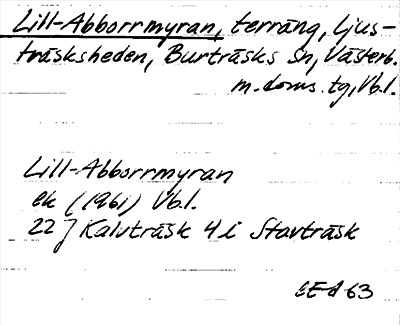 Lill-Abborrmyran, terräng, Ljus-
träsksheden, Burträsks sn, Västerb.
m. doms. tg, Vb.l.
Lill-Abborrmyran
ek (1961) Vb.l.
22 J Kalvträsk 4 i Stavträsk
63